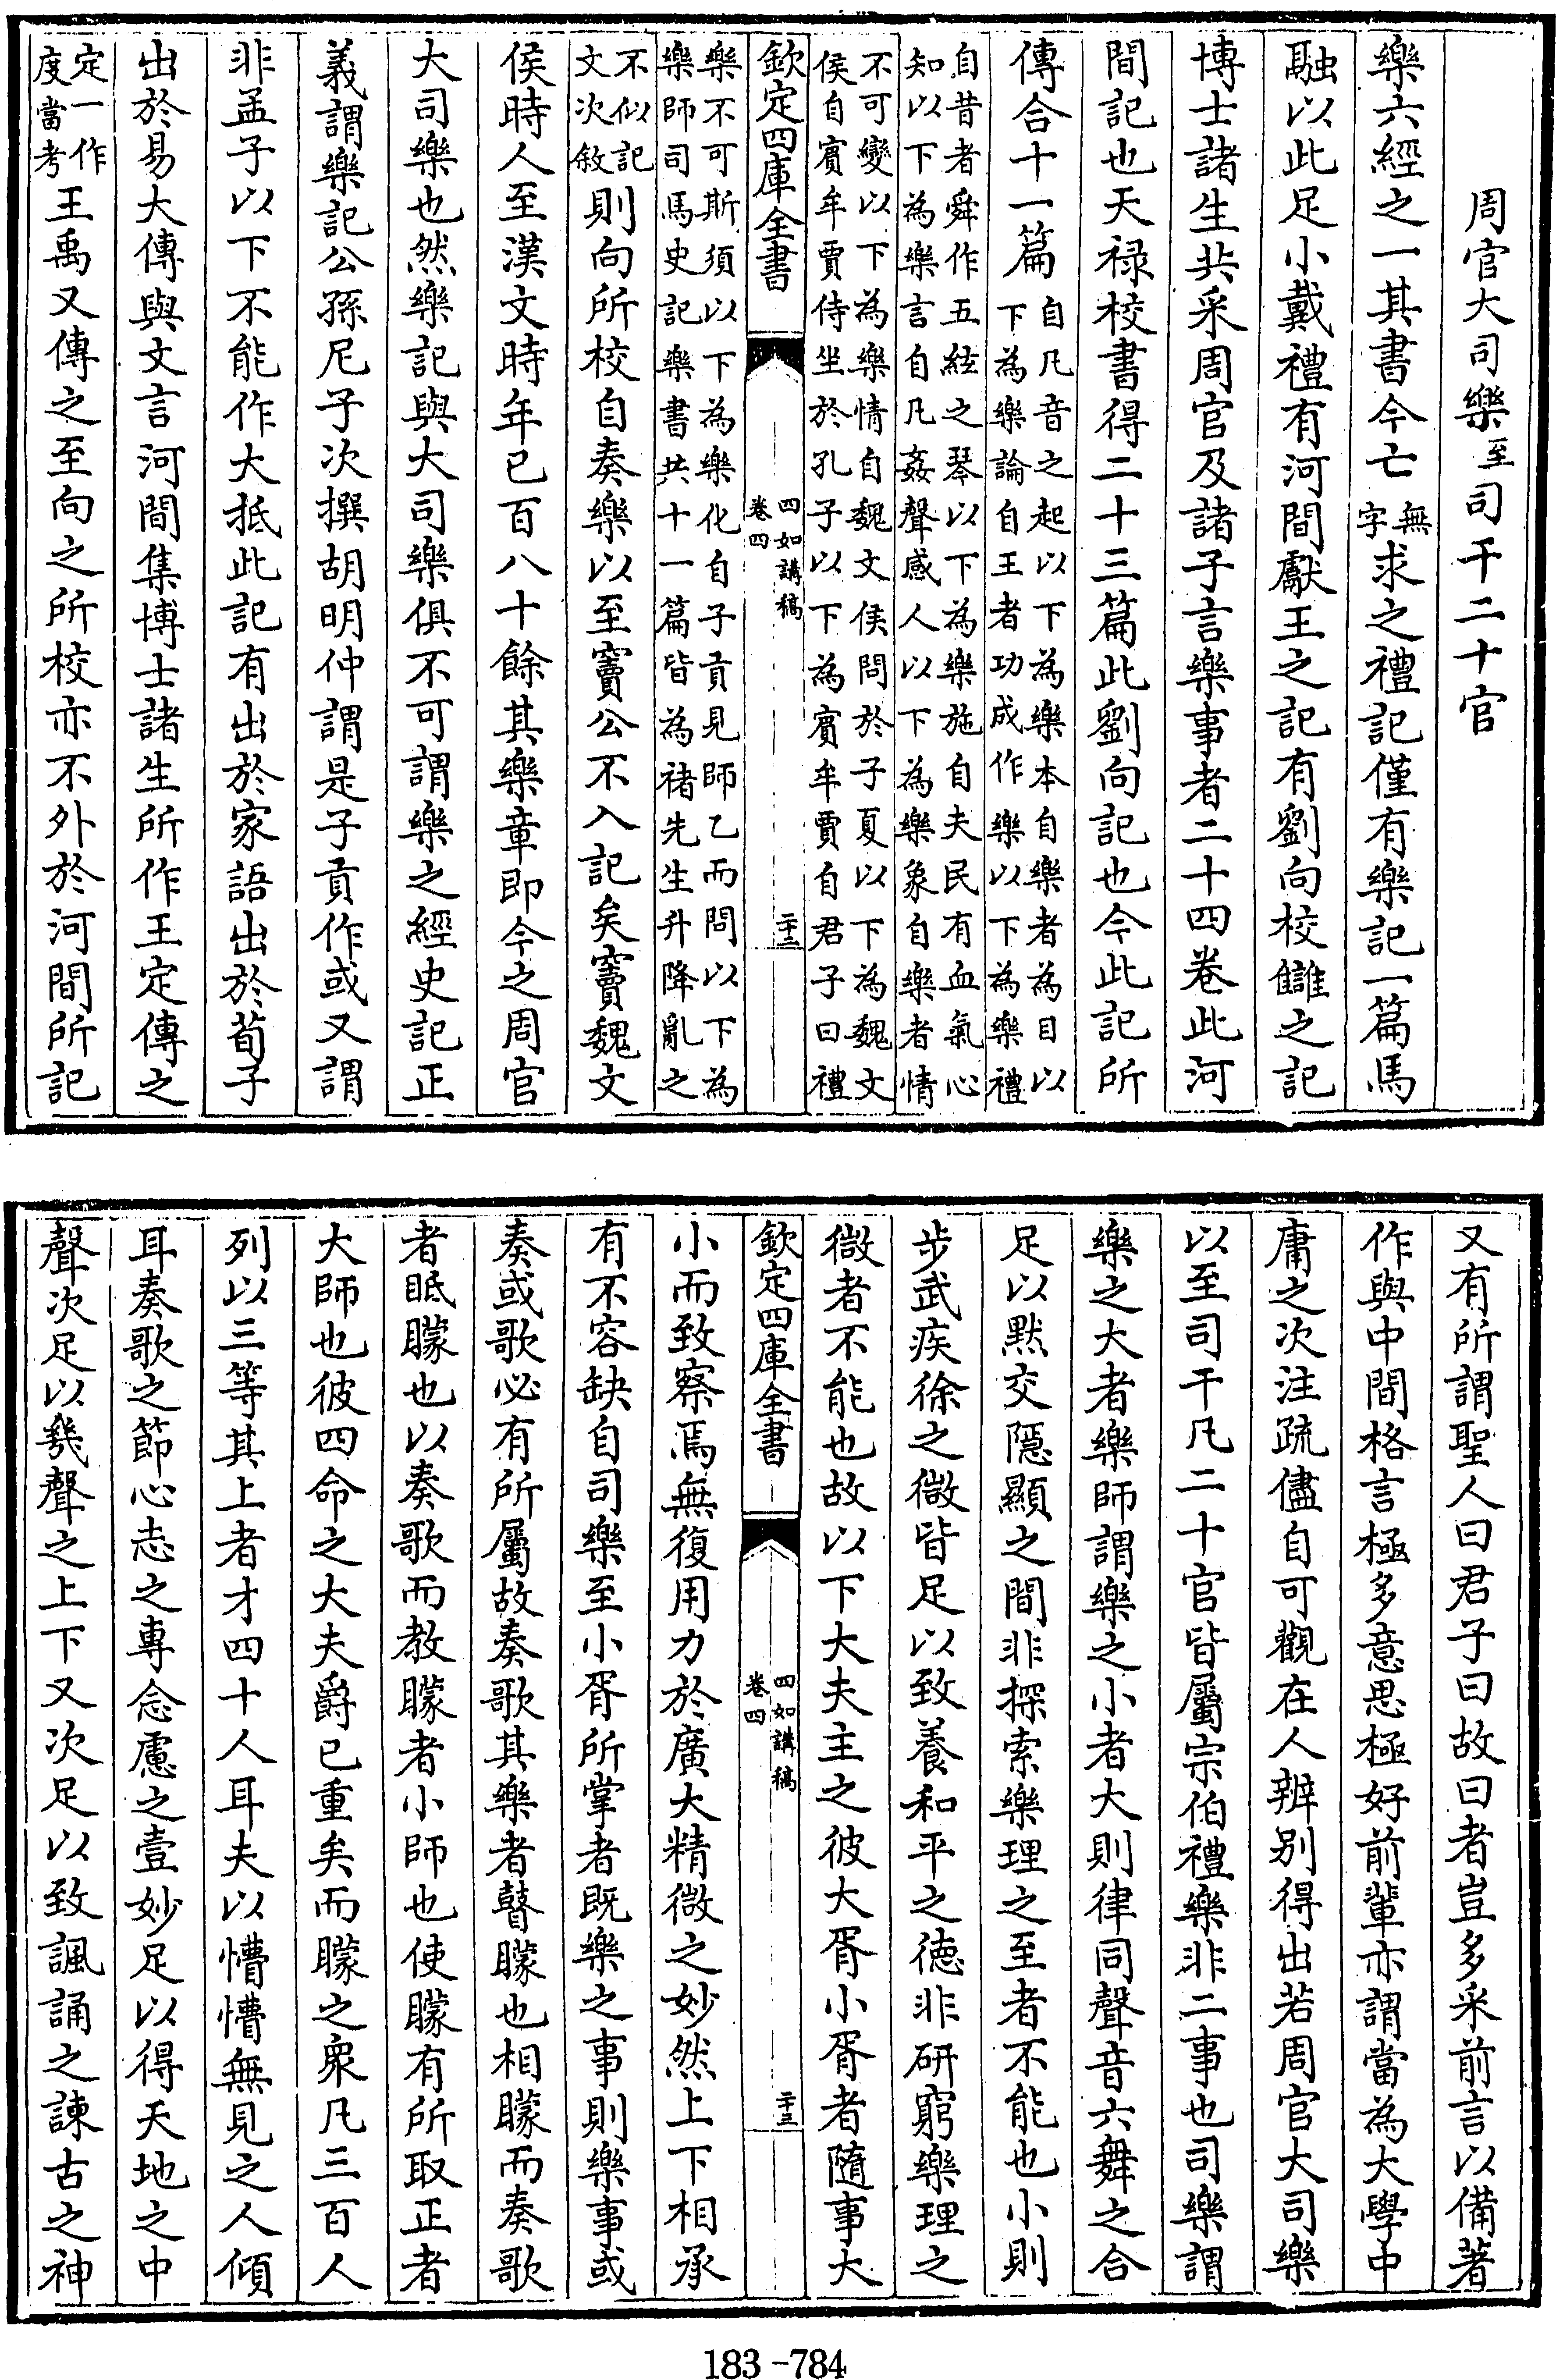 周官大司樂至司干二十官
樂六經之一其書今亡無字求之禮記僅有樂記一篇馬
融以此足小戴禮有河間獻王之記有劉向校讎之記
博士諸生共采周官及諸子言樂事者二十四卷此河
間記也天祿校書得二十三篇此劉向記也今此記所
傳合十一篇自凡音之起以下為樂本自樂者為目以
下為樂論自王者功成作樂以下為樂禮
自昔者舜作五絃之琴以下為樂施自夫民有血氣心
知以下為樂言自凡姦聲感人以下為樂象自樂者情
不可變以下為樂情自魏文侯問於子夏以下為魏文
侯自賓牟賈侍坐於孔子以下為賓牟賈自君子曰禮
欽定四庫全書
四如講稿
卷四
二十二
樂不可斯須以下為樂化自子貢見師乙而問以下為
樂師司馬史記樂書共十一篇皆為褚先生升降亂之
不似記
文次敘則向所校自奏樂以至竇公不入記矣竇魏文
侯時人至漢文時年已百八十餘其樂章即今之周官
大司樂也然樂記與大司樂俱不可謂樂之經史記正
義謂樂記公孫尼子次撰胡明仲謂是子貢作或又謂
非孟子以下不能作大抵此記有出於家語出於荀子
出於易大傳與文言河間集博士諸生所作王定傳之
定一作
度當考王禹又傳之至向之所校亦不外於河間所記
又有所謂聖人曰君子曰故曰者豈多采前言以備著
作與中間格言極多意思極好前輩亦謂當為大學中
庸之次注疏儘自可觀在人辨別得出若周官大司樂
以至司干凡二十官皆屬宗伯禮樂非二事也司樂謂
樂之大者樂師謂樂之小者大則律同聲音六舞之合
足以默交隱顯之間非探索樂理之至者不能也小則
步武疾徐之微皆足以致養和平之德非研窮樂理之
微者不能也故以下大夫主之彼大胥小胥者隨事大
欽定四庫全書
四如講稿
卷四
二十三
小而致察焉無復用力於廣大精微之妙然上下相承
有不容缺自司樂至小胥所掌者既樂之事則樂事或
奏或歌必有所屬故奏歌其樂者瞽矇也相矇而奏歌
者眡矇也以奏歌而教矇者小師也使矇有所取正者
大師也彼四命之大夫爵已重矣而矇之衆凡三百人
列以三等其上者才四十人耳夫以懵懵無見之人傾
耳奏歌之節心志之專念慮之壹妙足以得天地之中
聲次足以幾聲之上下又次足以致諷誦之諫古之神
183-784